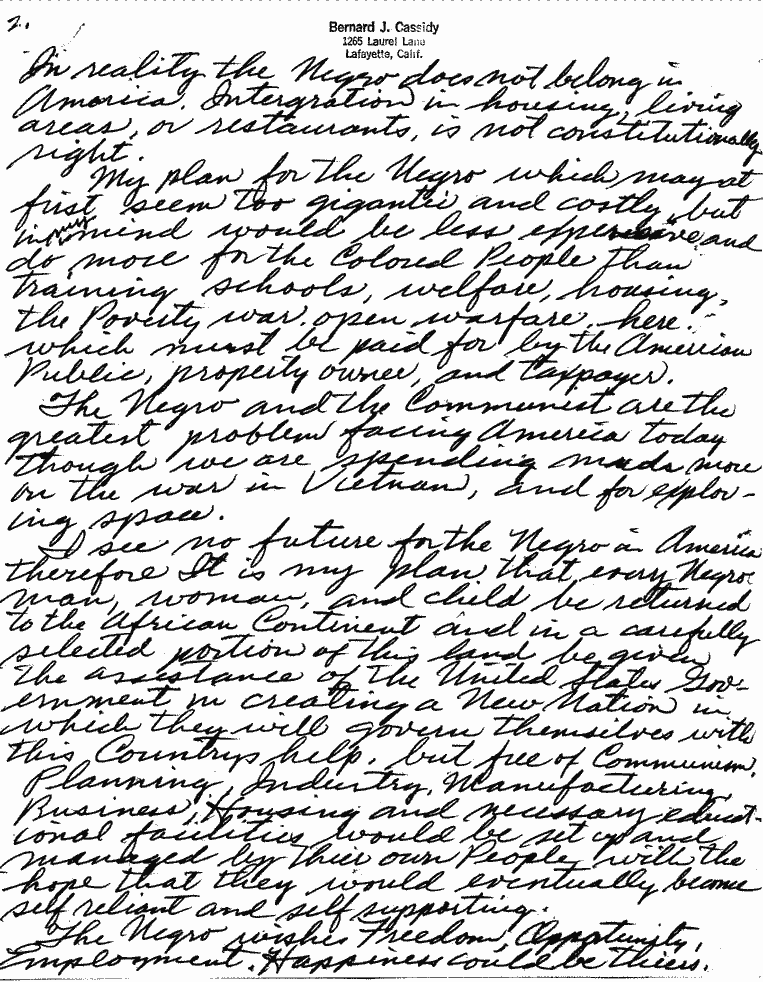 2.
Bernard J. Cassidy
1265 Laurel Lane
Lafayette, Calif.
In reality the Negro does not belong in
America. Intergration in housing, living
areas, or restaurants, is not constitutionally
right.
My plan for the Negro which may at
first seem too gigantic and costly, but
in my mind would be less expensive and
do more for the Colored People than
training schools, welfare, housing,
the Poverty war, open warfare here.
which must be paid for by the American
Public, property owner, and taxpayer.
The Negro and the Communist are the
greatest problem facing America today
though we are spending more
on the war in Vietnam, and for explor-
ing space.
I see no future for the Negro in America
therefore It is my plan that every Negro
man, woman, and child be returned
to the African Continent and in a carefully
selected portion of this land be given
the assistance of the United States Gov-
ernment in creating a New Nation in
which they will govern themselves with
this Countrys help, but free of Communism.
Planning, Industry, Manufacturing,
Business, Housing and necessary educat-
ional facilities would be set up and
managed by thier own People with the
hope that they would eventually become
self reliant and self supporting.
The Negro wishes Freedom, Opportunity,
Employment. Happiness could be theirs.